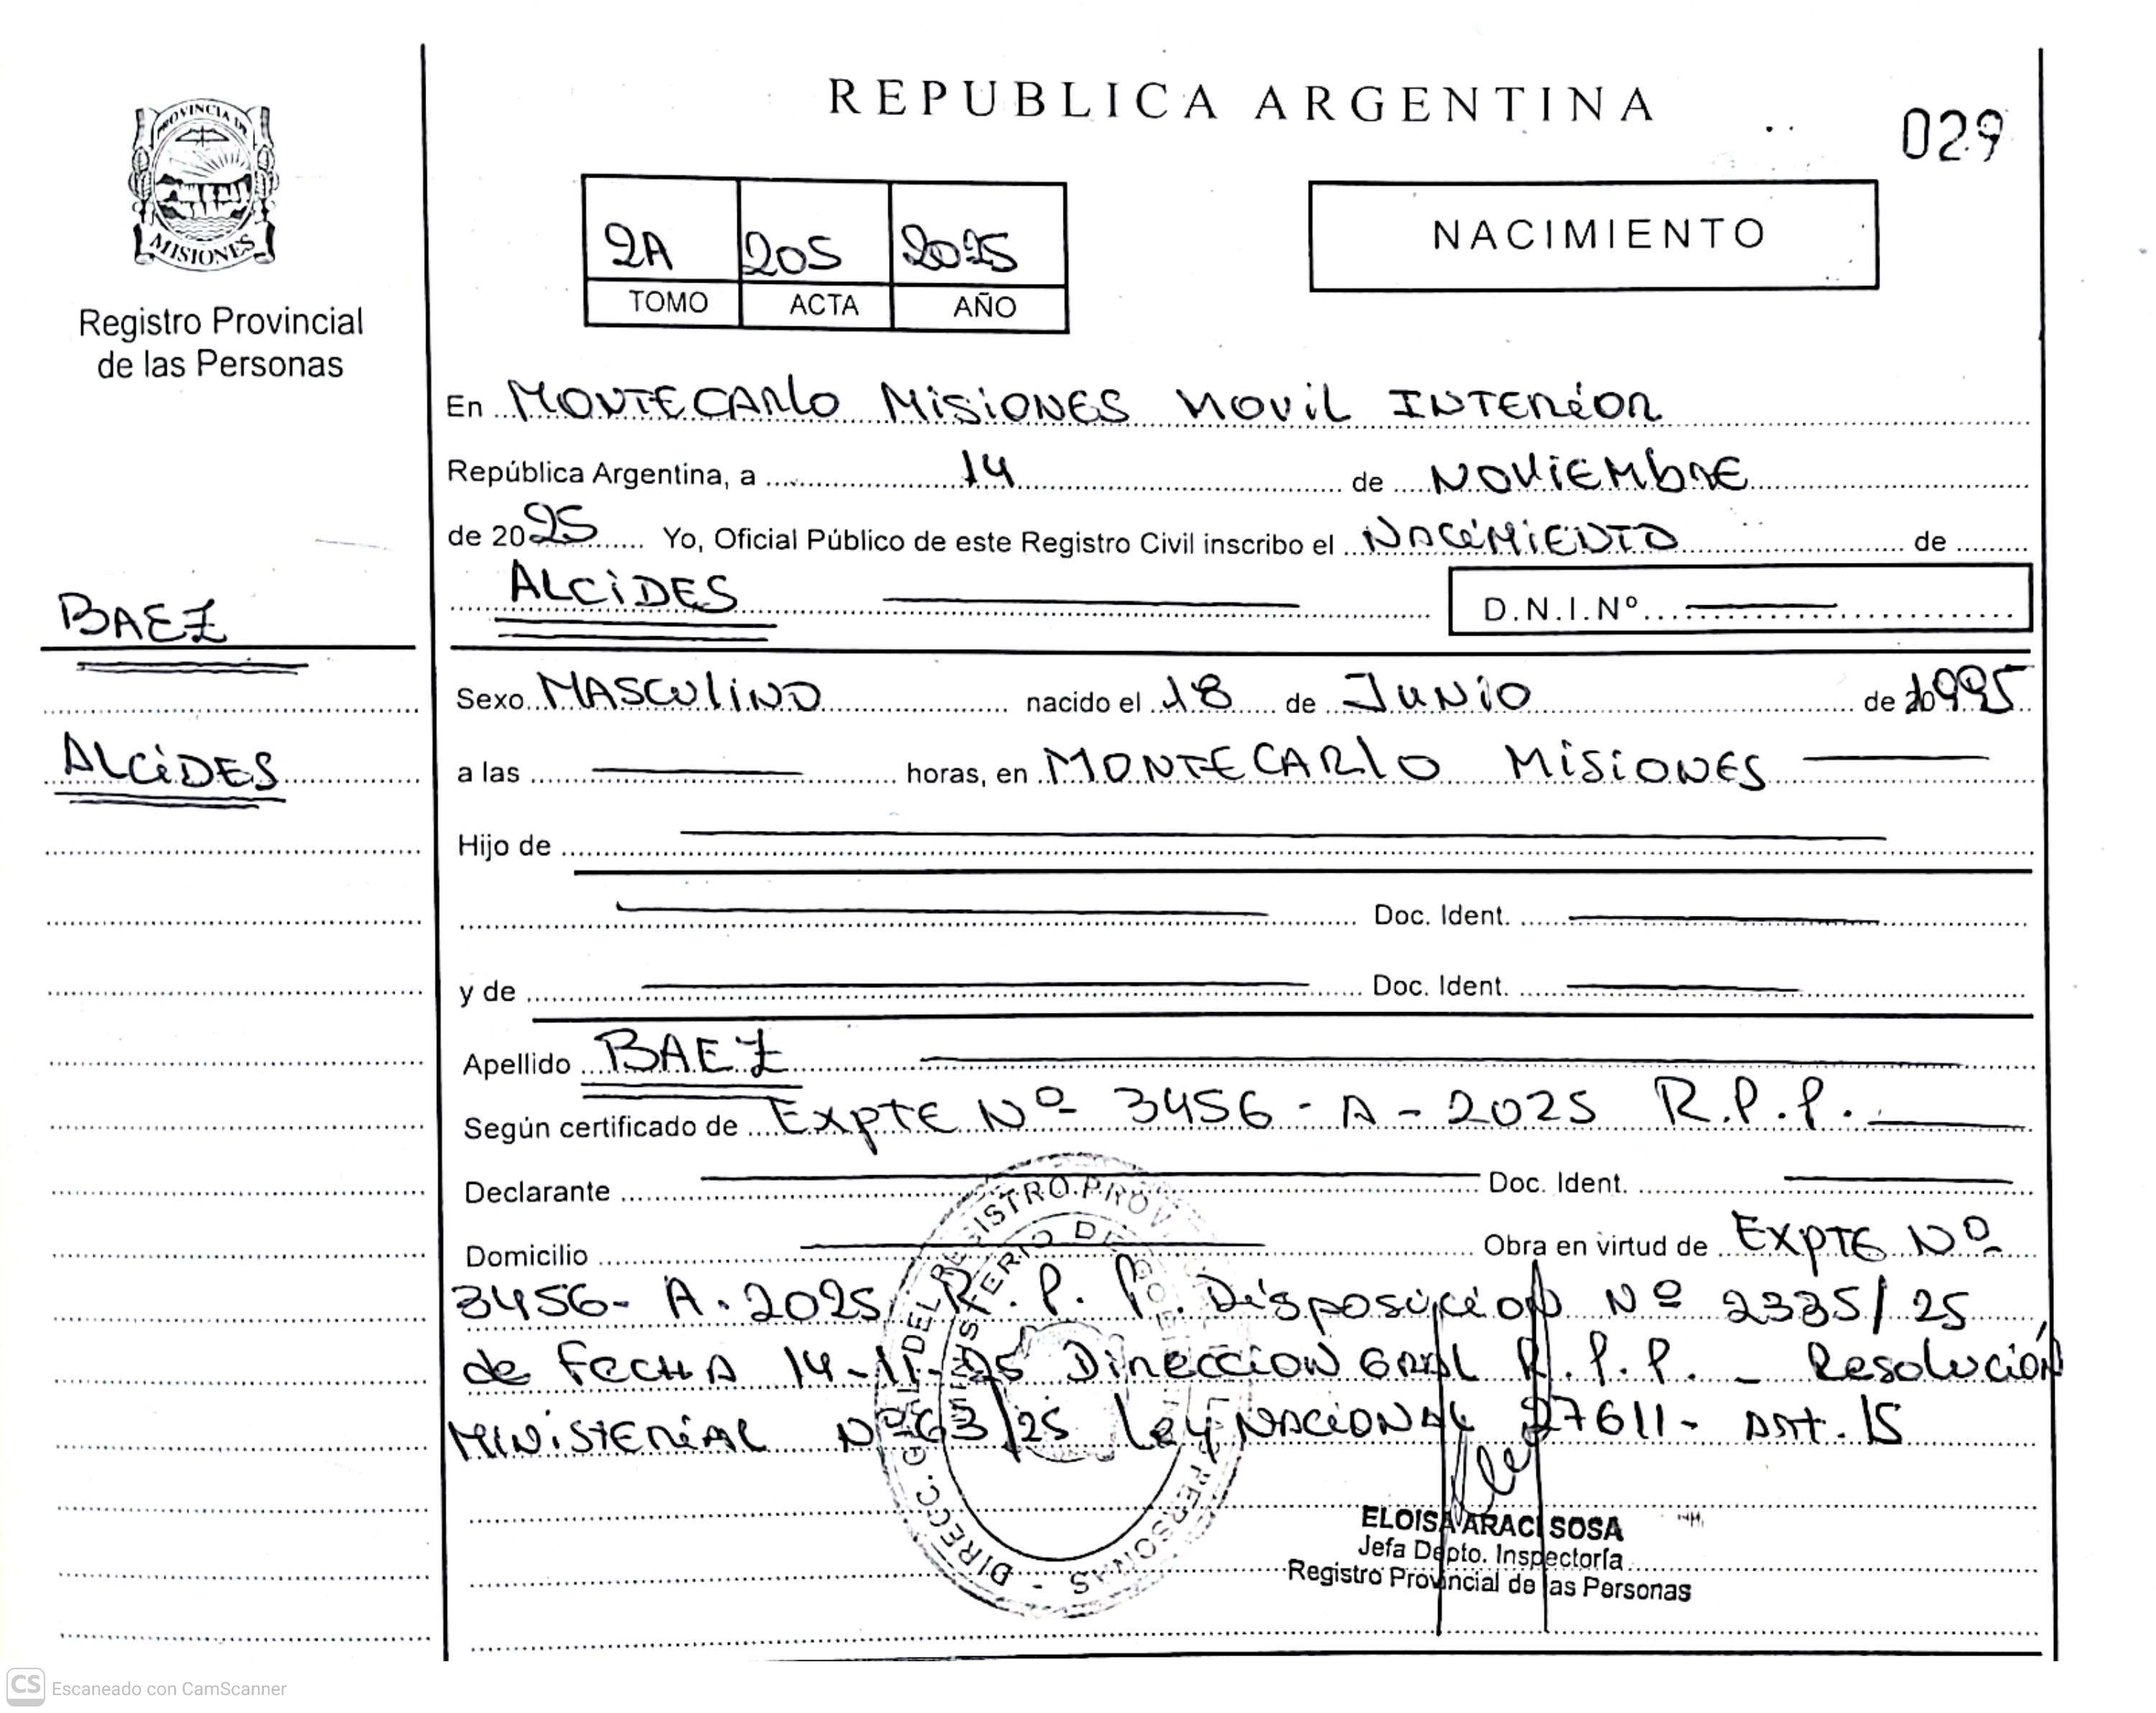 REPUBLICA ARGENTINA
029
PROVINCIA DE
MISIONES
Registro Provincial
de las Personas
2A 205 2025
TOMO ACTA AÑO
NACIMIENTO
En MONTECARLO MISIONES MOVIL INTERIOR
República Argentina, a 14 de NOVIEMBRE
de 2025 Yo, Oficial Público de este Registro Civil inscribo el NACIMIENTO de
ALCIDES D.N.I.Nº
BAEZ
Sexo MASCULINO nacido el 18 de JUNIO de 1995
ALCIDES
a las horas, en MONTECARLO MISIONES
Hijo de
Doc. Ident.
y de Doc. Ident.
Apellido BAEZ
Según certificado de EXPTE Nº 3456-A-2025 R.P.P.
Declarante Doc. Ident.
Domicilio Obra en virtud de EXPTE Nº
3456-A-2025 R.P.P. Disposición Nº 2335/25
de FECHA 14-11-25 DIRECCION GRAL R.P.P. - Resolución
MINISTERIAL Nº 63/25 Ley NACIONAL 27611- ART. 15
DIRECC. GRAL. DEL REGISTRO PROV PERSONAS -
MINISTERIO DE GOBIE
ELOISA ARACI SOSA
Jefa Depto. Inspectoría
Registro Provincial de las Personas
CS Escaneado con CamScanner